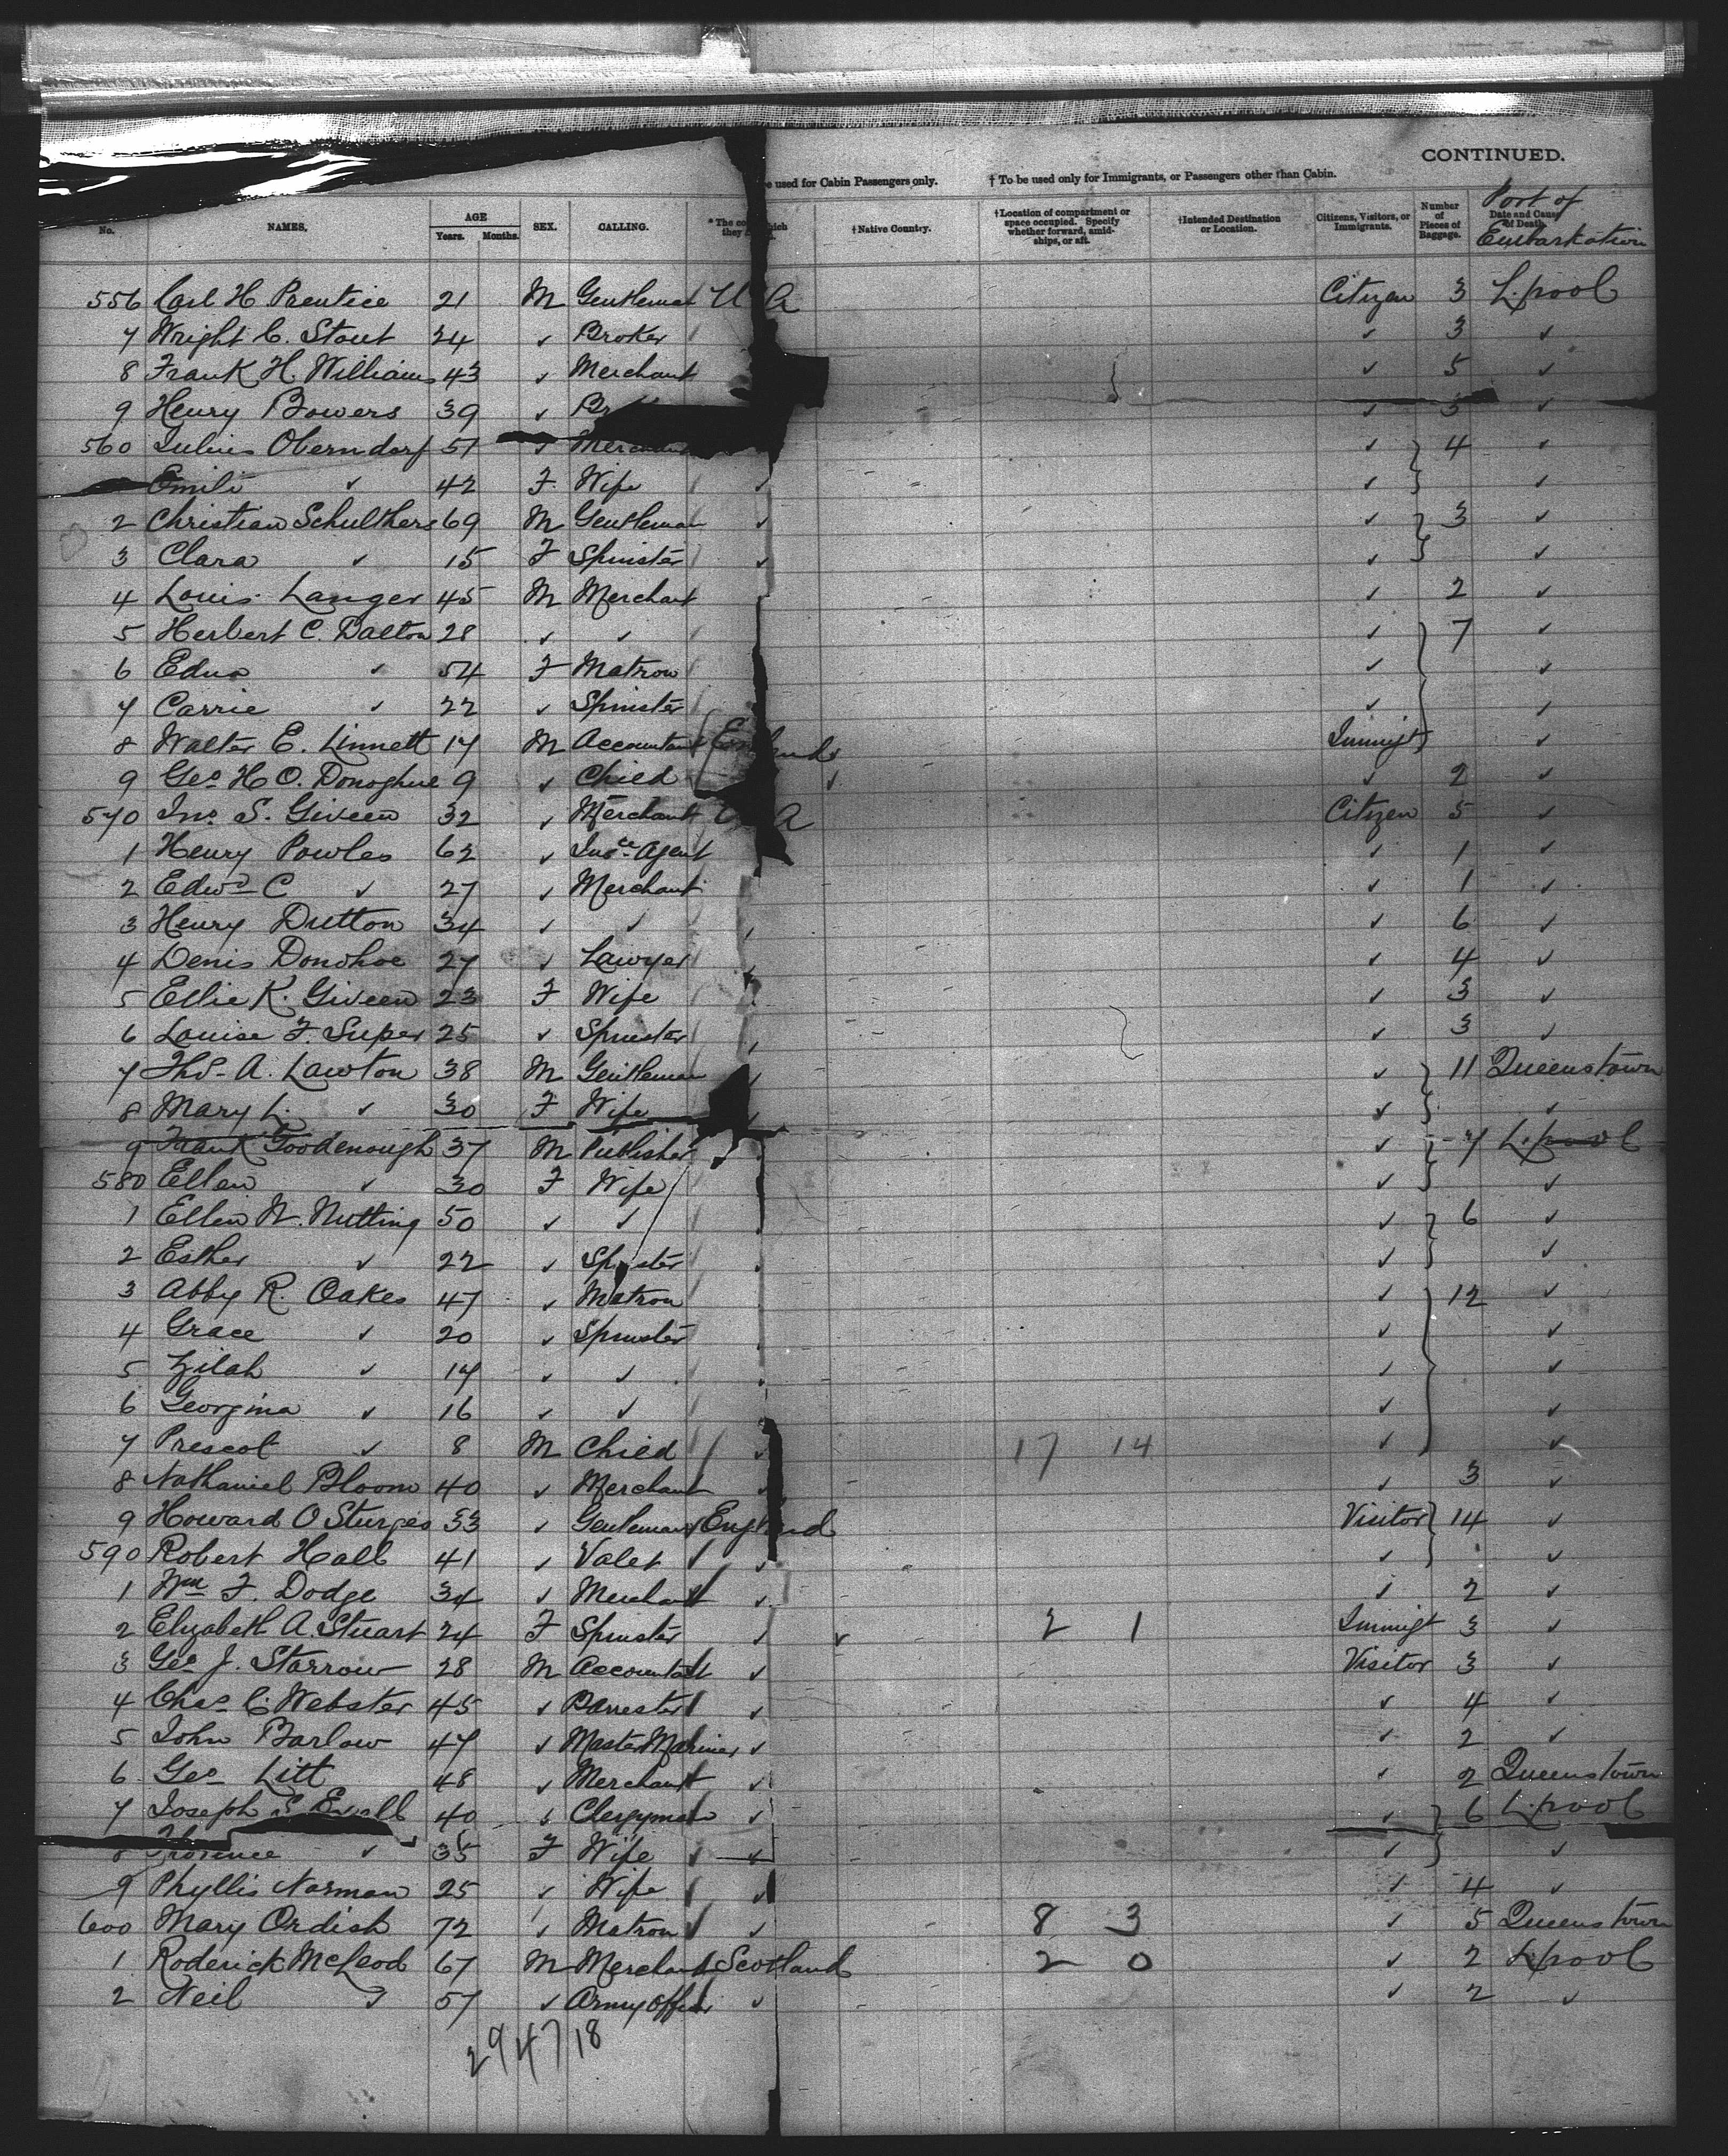 CONTINUED.
e used for Cabin Passengers only. † To be used only for Immigrants, or Passengers other than Cabin.
No. NAMES. AGE Years. Months. SEX. CALLING. *The co which they †Native Country. †Location of compartment or space occupied. Specify whether forward, amidships, or aft. †Intended Destination or Location. Citizens, Visitors, or Immigrants. Number of Pieces of Baggage. Date and Cause of Death. Port of Embarkation
556 Carl H Prentice 21 M Gentleman U A Citizen 3 L.pool
7 Wright C. Stout 24 ✓ Broker ✓ 3 ✓
8 Frank H. Williams 43 ✓ Merchant ✓ 5 ✓
9 Henry Bowers 39 ✓ Br ✓ 3 ✓
560 Julius Oberndorf 51 ✓ Merchant ✓ 4 ✓
Emili ✓ 42 F. Wife ✓ ✓ ✓
2 Christian Schulthers 69 M Gentleman ✓ ✓ 3 ✓
3 Clara ✓ 15 F Spinster ✓ ✓ ✓
4 Louis Langer 45 M Merchant ✓ 2 ✓
5 Herbert C. Dalton 28 ✓ ✓ ✓ 7 ✓
6 Edna ✓ 54 F Matron ✓ ✓
7 Carrie ✓ 22 ✓ Spinster ✓ ✓
8 Walter E. Linnett 17 M Accountant England Immigt ✓
9 Geo H O. Donoghue 9 ✓ Child ✓ ✓ 2 ✓
570 Jno S. Giveen 32 ✓ Merchant U A Citizen 5 ✓
1 Henry Powles 62 ✓ Insce Agent ✓ 1 ✓
2 Edwd C ✓ 27 ✓ Merchant ✓ 1 ✓
3 Henry Dutton 34 ✓ ✓ ✓ 6 ✓
4 Denis Donohoe 27 ✓ Lawyer ✓ 4 ✓
5 Ellie K. Giveen 23 F Wife ✓ 3 ✓
6 Louise F. Super 25 ✓ Spinster ✓ 3 ✓
7 Thos A. Lawton 38 M Gentleman ✓ 11 Queenstown
8 Mary L. ✓ 30 F Wife ✓ ✓
9 Frank Goodenough 37 M Publisher ✓ 7 L.pool
580 Ellen ✓ 30 F Wife ✓ ✓
1 Ellen W. Nutting 50 ✓ ✓ ✓ 6 ✓
2 Esther ✓ 22 ✓ Spinster ✓ ✓
3 Abby R. Oakes 47 ✓ Matron ✓ 12 ✓
4 Grace ✓ 20 ✓ Spinster ✓ ✓
5 Zilah ✓ 17 ✓ ✓ ✓ ✓
6 Georgina ✓ 16 ✓ ✓ ✓ ✓
7 Prescot ✓ 8 M Child ✓ 17 14 ✓ ✓
8 Nathaniel Bloom 40 ✓ Merchant ✓ ✓ 3 ✓
9 Howard O Sturges 33 ✓ Gentleman England Visitor 14 ✓
590 Robert Hall 41 ✓ Valet ✓ ✓ ✓
1 Wm F. Dodge 34 ✓ Merchant ✓ ✓ 2 ✓
2 Elizabeth A. Stuart 24 F Spinster ✓ ✓ 2 1 Immigt 3 ✓
3 Geo J. Starrow 28 M Accountant ✓ Visitor 3 ✓
4 Chas C. Webster 45 ✓ Barrester ✓ ✓ 4 ✓
5 John Barlow 47 ✓ Master Mariner ✓ ✓ 2 ✓
6 Geo Litt 48 ✓ Merchant ✓ ✓ 2 Queenstown
7 Joseph 40 ✓ Clergyman ✓ ✓ 6 L.pool
8 Florence ✓ 35 F Wife ✓ ✓ ✓
9 Phyllis Norman 25 ✓ Wife ✓ ✓ 4 ✓
600 Mary Ordish 72 ✓ Matron ✓ 8 3 ✓ 5 Queenstown
1 Roderick McLeod 67 M Merchant Scotland 2 0 ✓ 2 L.pool
2 Neil ✓ 57 ✓ Army Officer ✓ ✓ 2 ✓
29 47 18